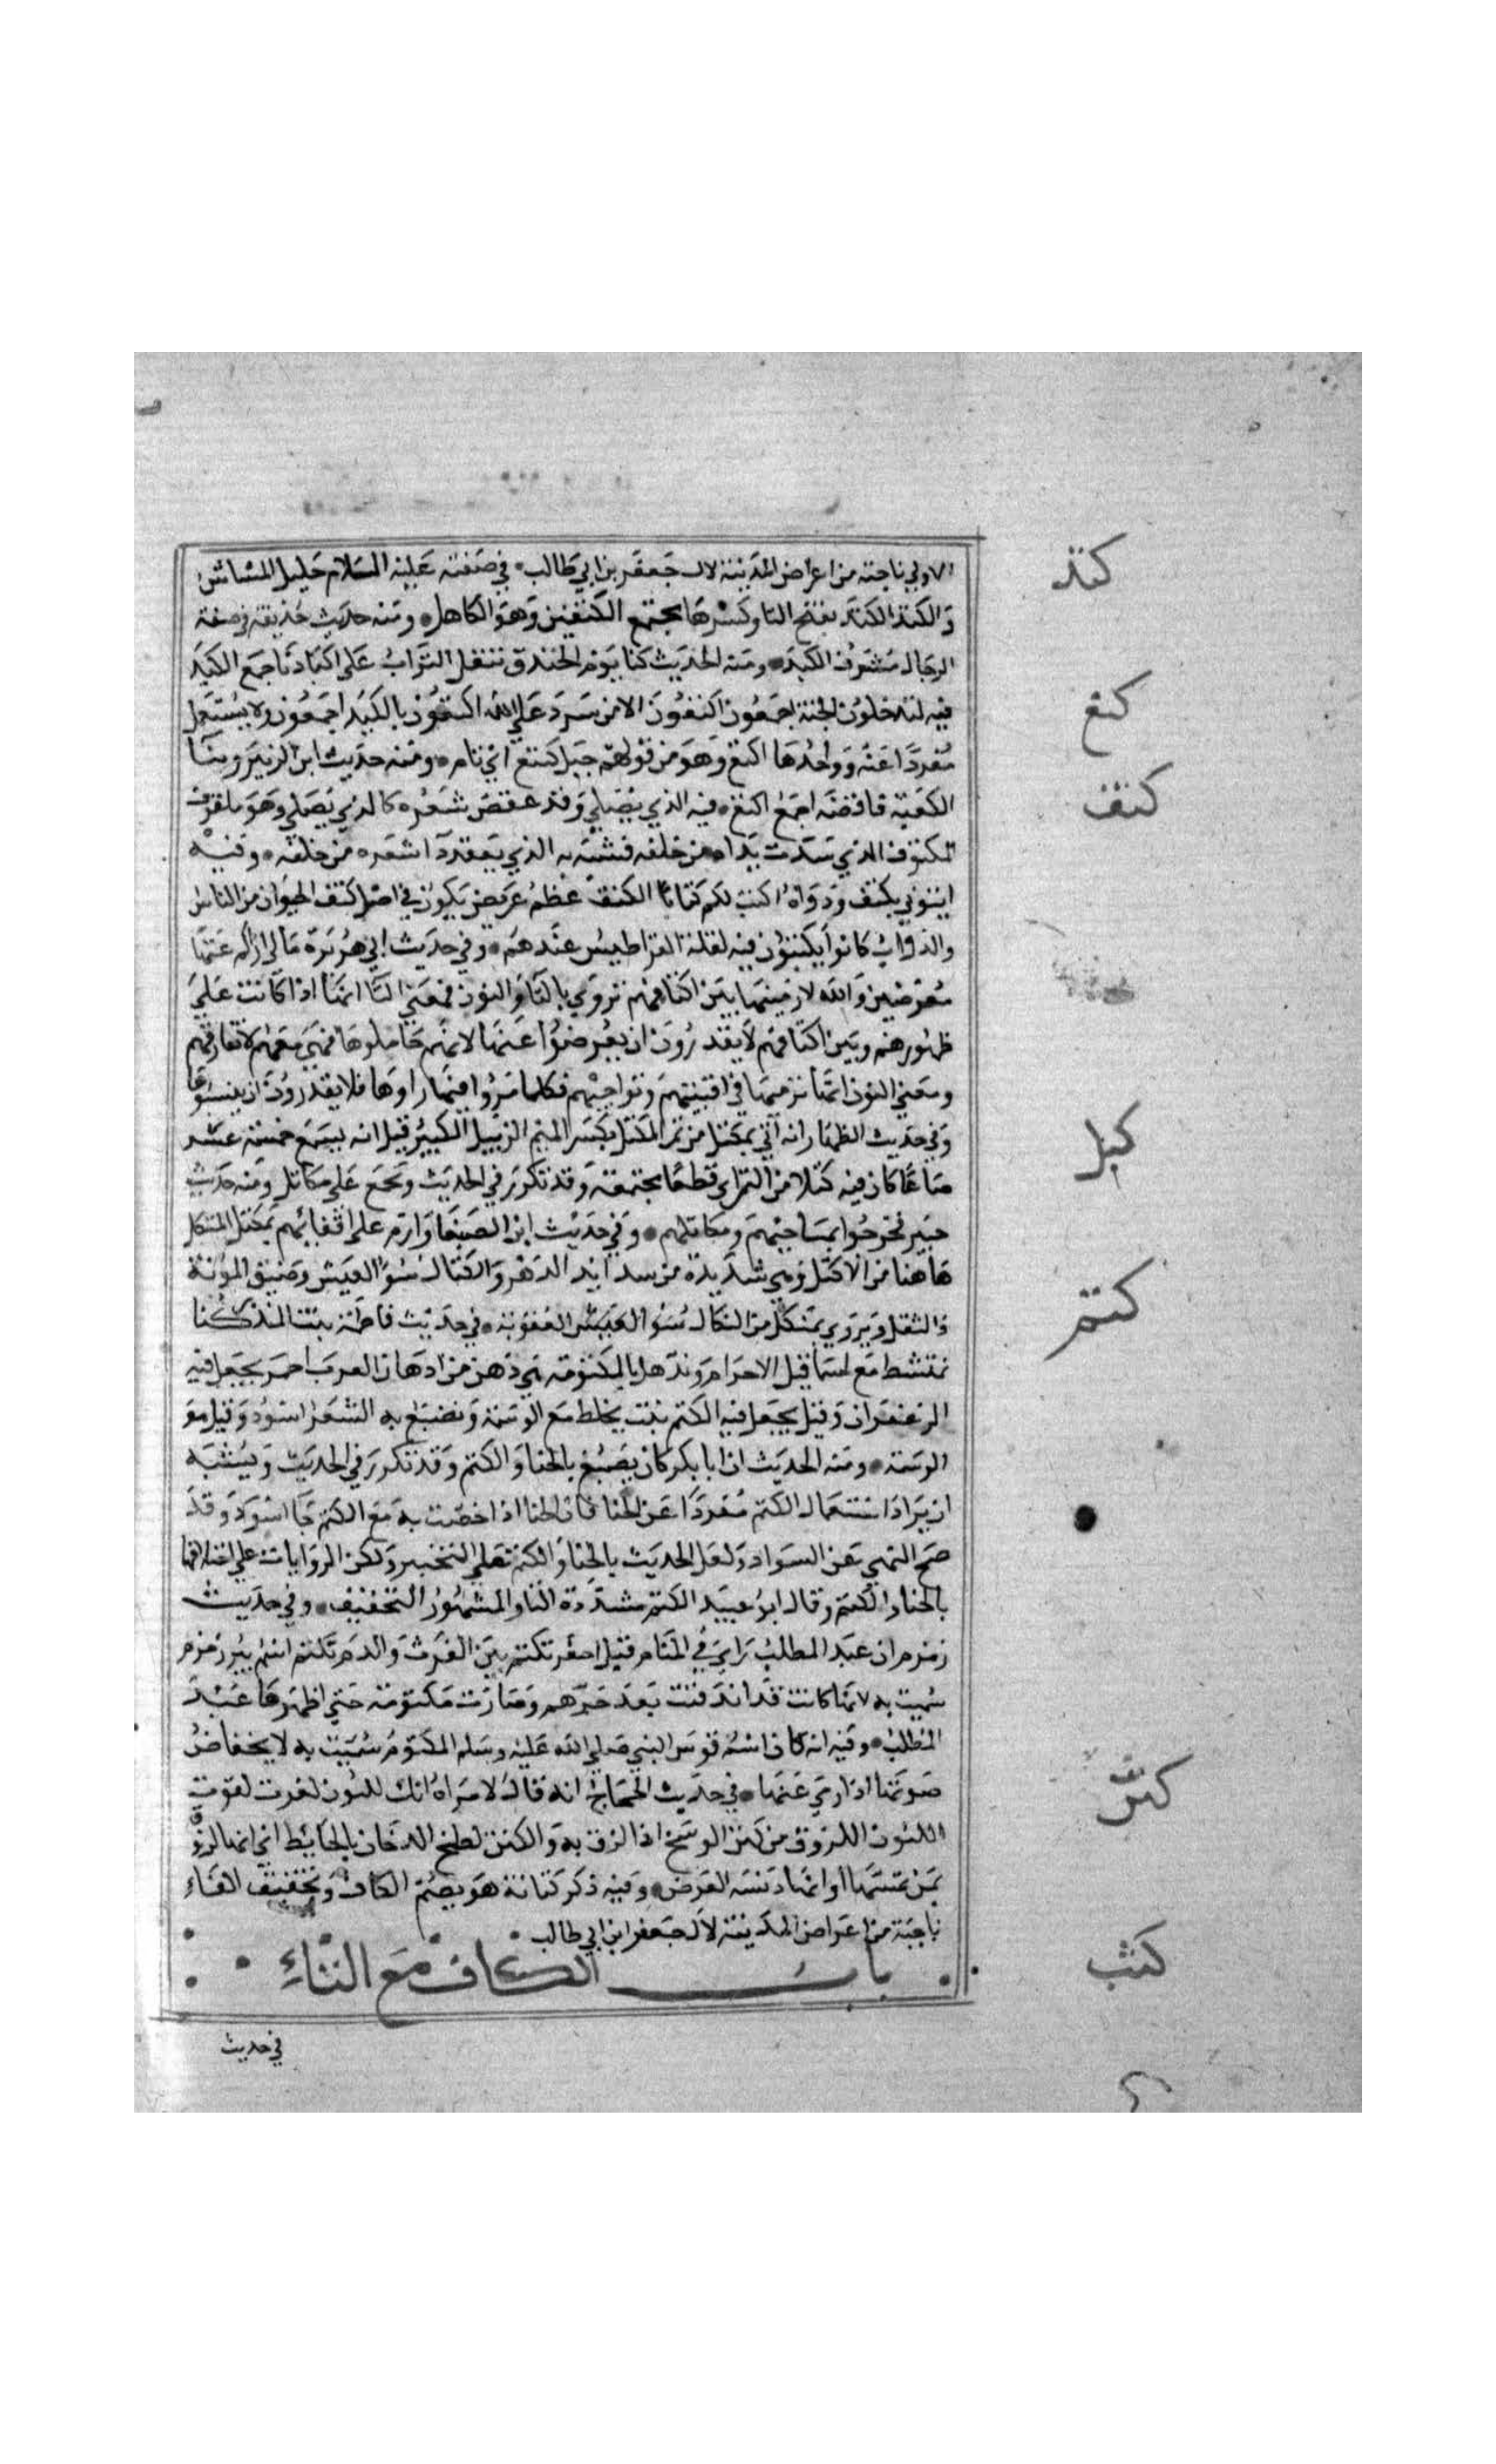 الاولي ناحية من اعراض المدينة لال جعفر بن ابي طالب في صفته عليه السلام جليل المشاش
والكتد الكتد بفتح التا وكسرها مجتمع الكتفين وهو الكاهل ومنه حديث حذيفة في صفة
الدجال مشرف الكتد ومنه الحديث كنا يوم الخندق ننقل التراب على اكتادنا جمع الكتد
فيه لتدخلون الجنة اجمعون اكتعون الا من شرد على الله اكتعون تاكيد اجمعون ولا يستعمل
مفردا عنه وواحدها اكتع وهو من قولهم جبل كتيع اي تام ومنه حديث ابن الزبير وبنا
الكعبة فاقضه اجمع اكتع فيه الذي يصلي وقد عقص شعره كالذي يصلي وهو مكتوف
المكتوف الذي شدت يداه من خلفه فشبه به الذي يعقد شعره من خلفه وفيه
ايتوني بكتف ودواة اكتب لكم كتابا الكتف عظم عريض يكون في اصل كتف الحيوان من الناس
والدواب كانوا يكتبون فيه لقلة القراطيس عندهم وفي حديث ابي هريرة مالي اراكم عنها
معرضين والله لارمينها بين اكتافكم تروي بالتا والنون فمعني التا انها اذا كانت علي
ظهورهم وبين اكتافهم لا يقدرون ان يعرضوا عنها لانهم حاملوها فهي معهم لا تفارقهم
ومعني النون انها نرميها في افنيتهم ونواحيهم فكلما مروا فيها راوها فلا يقدرون ان ينسوها
وفي حديث الظهار انه اتي بمكتل من تمر المكتل بكسر الميم الزبيل الكبير قيل انه يسع خمسة عشر
صاعا كان فيه كتلا من التمر اي قطعا مجتمعة وقد تكرر في الحديث ويجمع علي مكاتل ومنه حديث
خيبر فخرجوا بمساحيهم ومكاتلهم وفي حديث ابن الصبغا وارم علي اقفائهم بمكتل المكتل
هاهنا من الاكتل وهي شديدة من شدايد الدهر والكتال سوء العيش وضيق المؤنة
والثقل ويروي بمنكل من النكال العقوبة في حديث فاطمة بنت المنذر كنا
نمتشط مع اسما قبل الاحرام وندهن بالمكتومة هي دهن من ادهان العرب احمر يجعل فيه
الزعفران وقيل يجعل فيه الكتم نبت يخلط مع الوسمة ويصبغ به الشعر اسود وقيل هو
الوسمة ومنه الحديث ان ابا بكر كان يصبغ بالحنا والكتم وقد تكرر في الحديث ويشبه
ان يراد استعمال الكتم مفردا عن الحنا فان الحنا اذا خضب به مع الكتم جا اسود وقد
صح النهي عن السواد ولعل الحديث بالحنا والكتم علي التخيير ولكن الروايات علي اختلافها
بالحنا والكتم وقال ابو عبيد الكتم مشددة التا والمشهور التخفيف وفي حديث
زمزم ان عبد المطلب راي في المنام قيل احفر تكتم بين الفرث والدم تكتم اسم بير زمزم
سميت به لانها كانت قد اندفنت بعد جرهم وصارت مكتومة حتي اظهرها عبد
المطلب وفيه انه كان اسم قوس النبي صلي الله عليه وسلم الكتوم سميت به لانخفاض
صوتها اذا رمي عنها في حديث الحجاج انه قال لامراة انك لكتون لفوت لقوت
الكتون اللزوق من كتن الوسخ اذا لزق به والكتن لطخ الدخان بالحايط اي انها لزوق
بمن يمسها او انها دنسة العرض وفيه ذكر كتانة هو بضم الكاف وتخفيف التاء
ناحية من اعراض المدينة لآل جعفر ابن ابي طالب
باب الكاف مع الثاء
في حديث
كتد
كتع
كتف
كتل
كتم
كتن
كثب